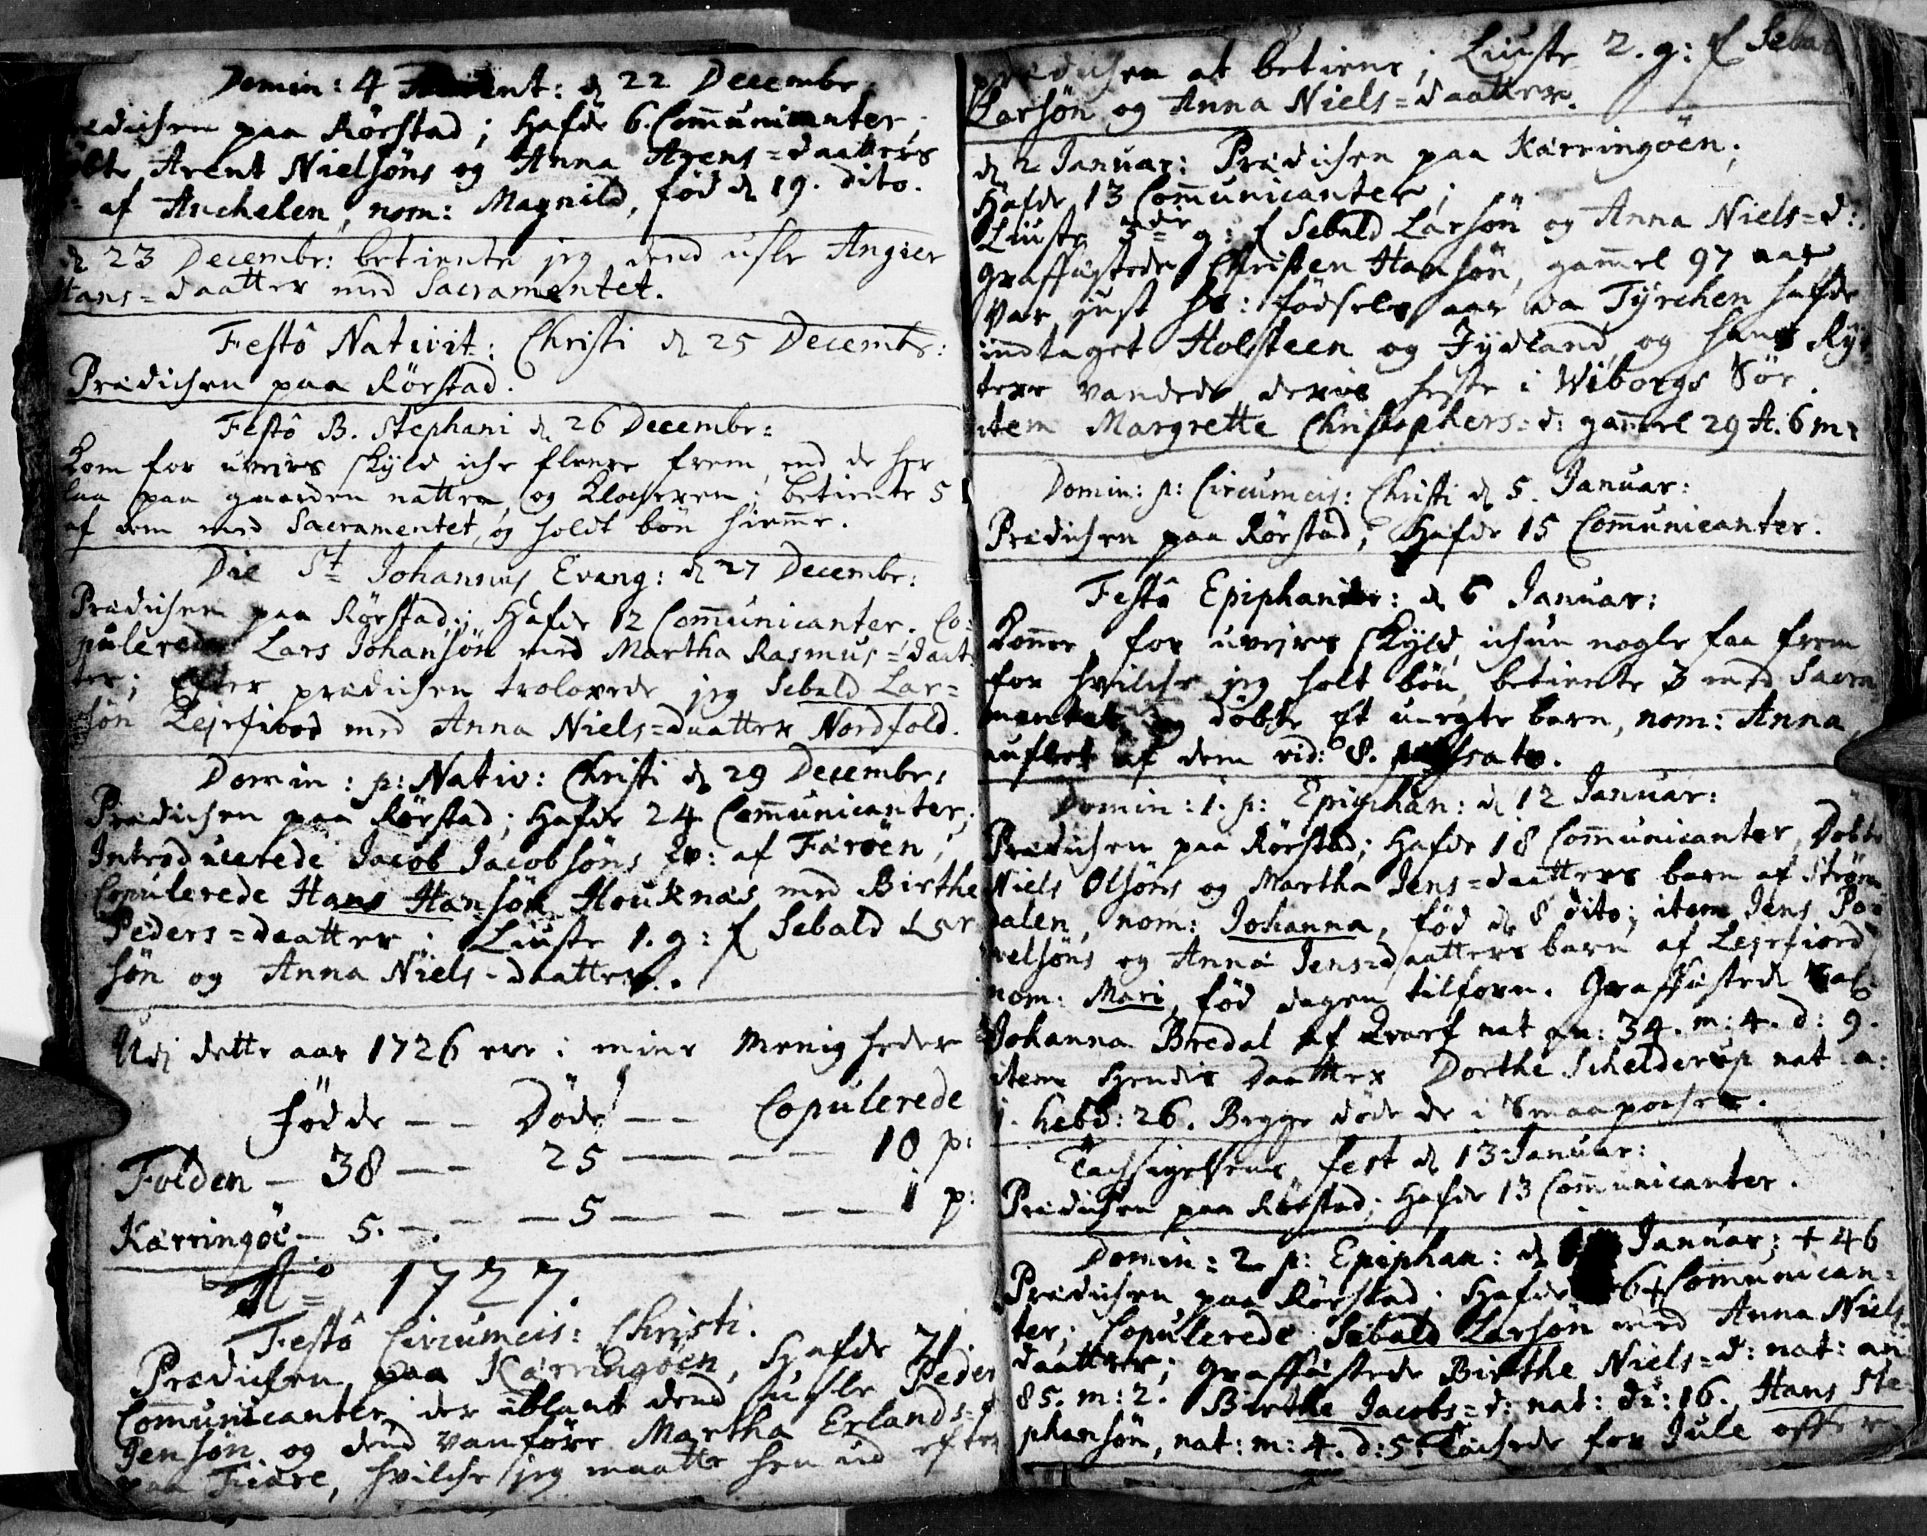 Domin: 4 Advent: d 22 Decembr.
Prædichen paa Rørstad; Hafde 6. Com̄unicanter;
døbte Arent Nielsøns og Anna Arens=daatters
af Anchelen, nom: Magnild, fød d 19. dito.
d 23 Decembr: betiente jeg dend usle Angier
Hans=daatter med Sacramentet.
Festô Nativit: Christi d 25 Decembr:
Prædichen paa Rørstad.
Festô B. Stephani d 26 Decembr:
Kom for uveirs skyld iche fleere frem, end de her
laa paa gaarden natten, og Klocheren; betiente 5
af dem med Sacramentet, og holdt bøn hiem̄e.
Die St Johannis Evang: d 27 Decembr:
Prædichen paa Rørstad; Hafde 12 Com̄unicanter. Co:
pulerede Lars Johansøn med Martha Rasmus=daat:
ter; Efter prædichen trolovede jeg Sebald Lar=
søn Lejrfiord med Anna Niels=daatter Nordfold.
Domin: p: Nativ: Christi d 29 Decembr:
Prædichen paa Rørstad; Hafde 24 Com̄unicanter;
Introducerede Jacob Jacobsøns qv: af Færøen;
Copulerede Hans Hansøn Houknæs med Birthe
Peders=daatter; Liuste 1. g: f Sebald Lar
søn og Anna Niels-daatter.
Udj dette aar 1726 ere i mine Menigheder
Fødde — Døde — Copulerede
Folden — 38 — 25 — 10 p:
Kærringøe — 5. — 5 — 1 p:
Ao 1727.
Festô Circumcis: Christi.
Prædichen paa Kærringøen, Hafde 21
Com̄unicanter, der iblant dend usle Peder
Jensøn og dend vanføre Martha Erlands=d
paa Fiære, hvilche jeg maatte hen ud efter
prædichen at betiene; Liuste 2. g: f Sebal
Larsøn og Anna Niels=daatter.
d 2 Januar: Prædichen paa Kærringøen;
Hafde 13 Com̄unicanter;
Liuste 3die g: f Sebald Larsøn og Anna Niels=d:
Graffæstede Christen Hansøn, gam̄el 97 aar,
var just hs: fødsels aar da Tyrchen hafde
indtaget Holsteen og Jydland og hans Ryt
tere vandede deris heste i Wiborgs Sør.
item Margrette Christophers=d: gam̄el 29 A. 6 m:
Domin: p: Circumcis: Christi d 5. Januar:
Prædichen paa Rørstad; Hafde 15 Com̄unicanter.
Festô Epiphaniæ: d 6 Januar:
Kunne, for uveirs skyld, ichun nogle faa frem
for hvilche jeg holt bøn, betiente 3 med Sacra
mentet, og døbte Et uægte barn, nom: Anna,
auflet af dem vid: 8.
Domin: 1. p: Epiphan: d 12 Januar:
Prædichen paa Rørstad; Hafde 18 Com̄unicanter, Døbte
Niels Olsøns og Martha Jens=daatters barn af Strøm
dalen, nom: Johanna, fød d 8 dito; item Jens Po=
velsøns og Anna Jens=daatters barn af Lejrfiord
nom: Mari, fød dagen tilforn. Graffæstede Sal:
Johanna Bredal af Kvarf nat an: 34. m: 4. d: 9.
item Hendis Daatter Dorthe Schelderup nat a:
1. hebd: 26. Begge døde de i Smaapocher.
Tachsigelsens fest d 13 Januar:
Prædichen paa Rørstad; Hafde 13 Com̄unicanter.
Domin: 2 p: Epiphan: d Januar; + 46
Prædichen paa Rørstad; Hafde 46+ Com̄unican=
ter; Copulerede Sebald Larsøn med Anna Niels
daatter; Graffæstede Birthe Niels=d: nat: an
85. m: 2. Birthe Jacobs=d: nat: di: 16. Hans Ste
phansøn, nat: m: 4. d: 5. Tachede for Jule offer